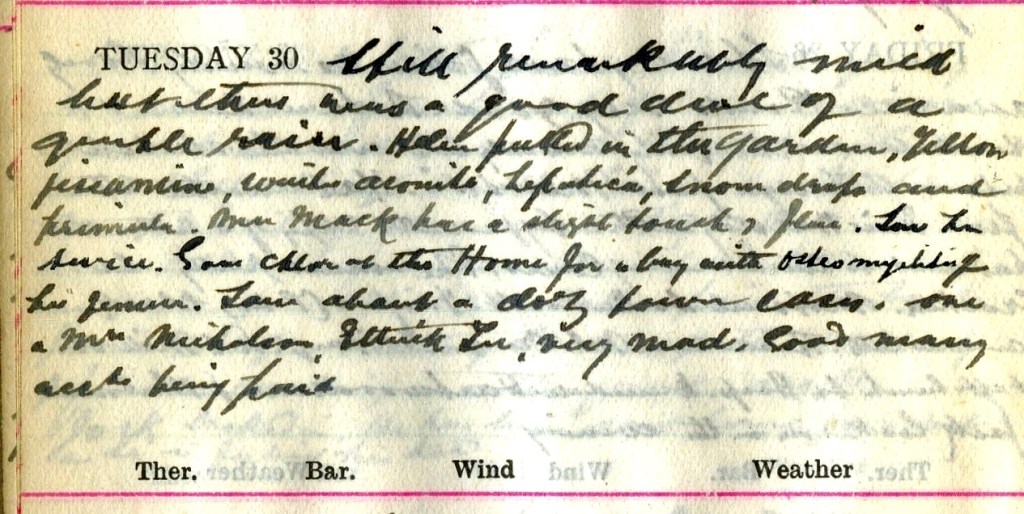 TUESDAY 30 Still remarkably mild
but there was a good deal of a
gentle rain. Helen putted in the garden, Yellow
jessamine, winter aconite, hepatica, snow drops and
primula. Mrs Mack has a slight touch of flu. Saw her
twice. Gave chlor at the Home for a boy with osteomyelitis of
his femur. Saw about a doz town cases, one
a Mrs Nicholson, Ettrick Ter, very mad. Good many
accts being paid
Ther. Bar. Wind Weather